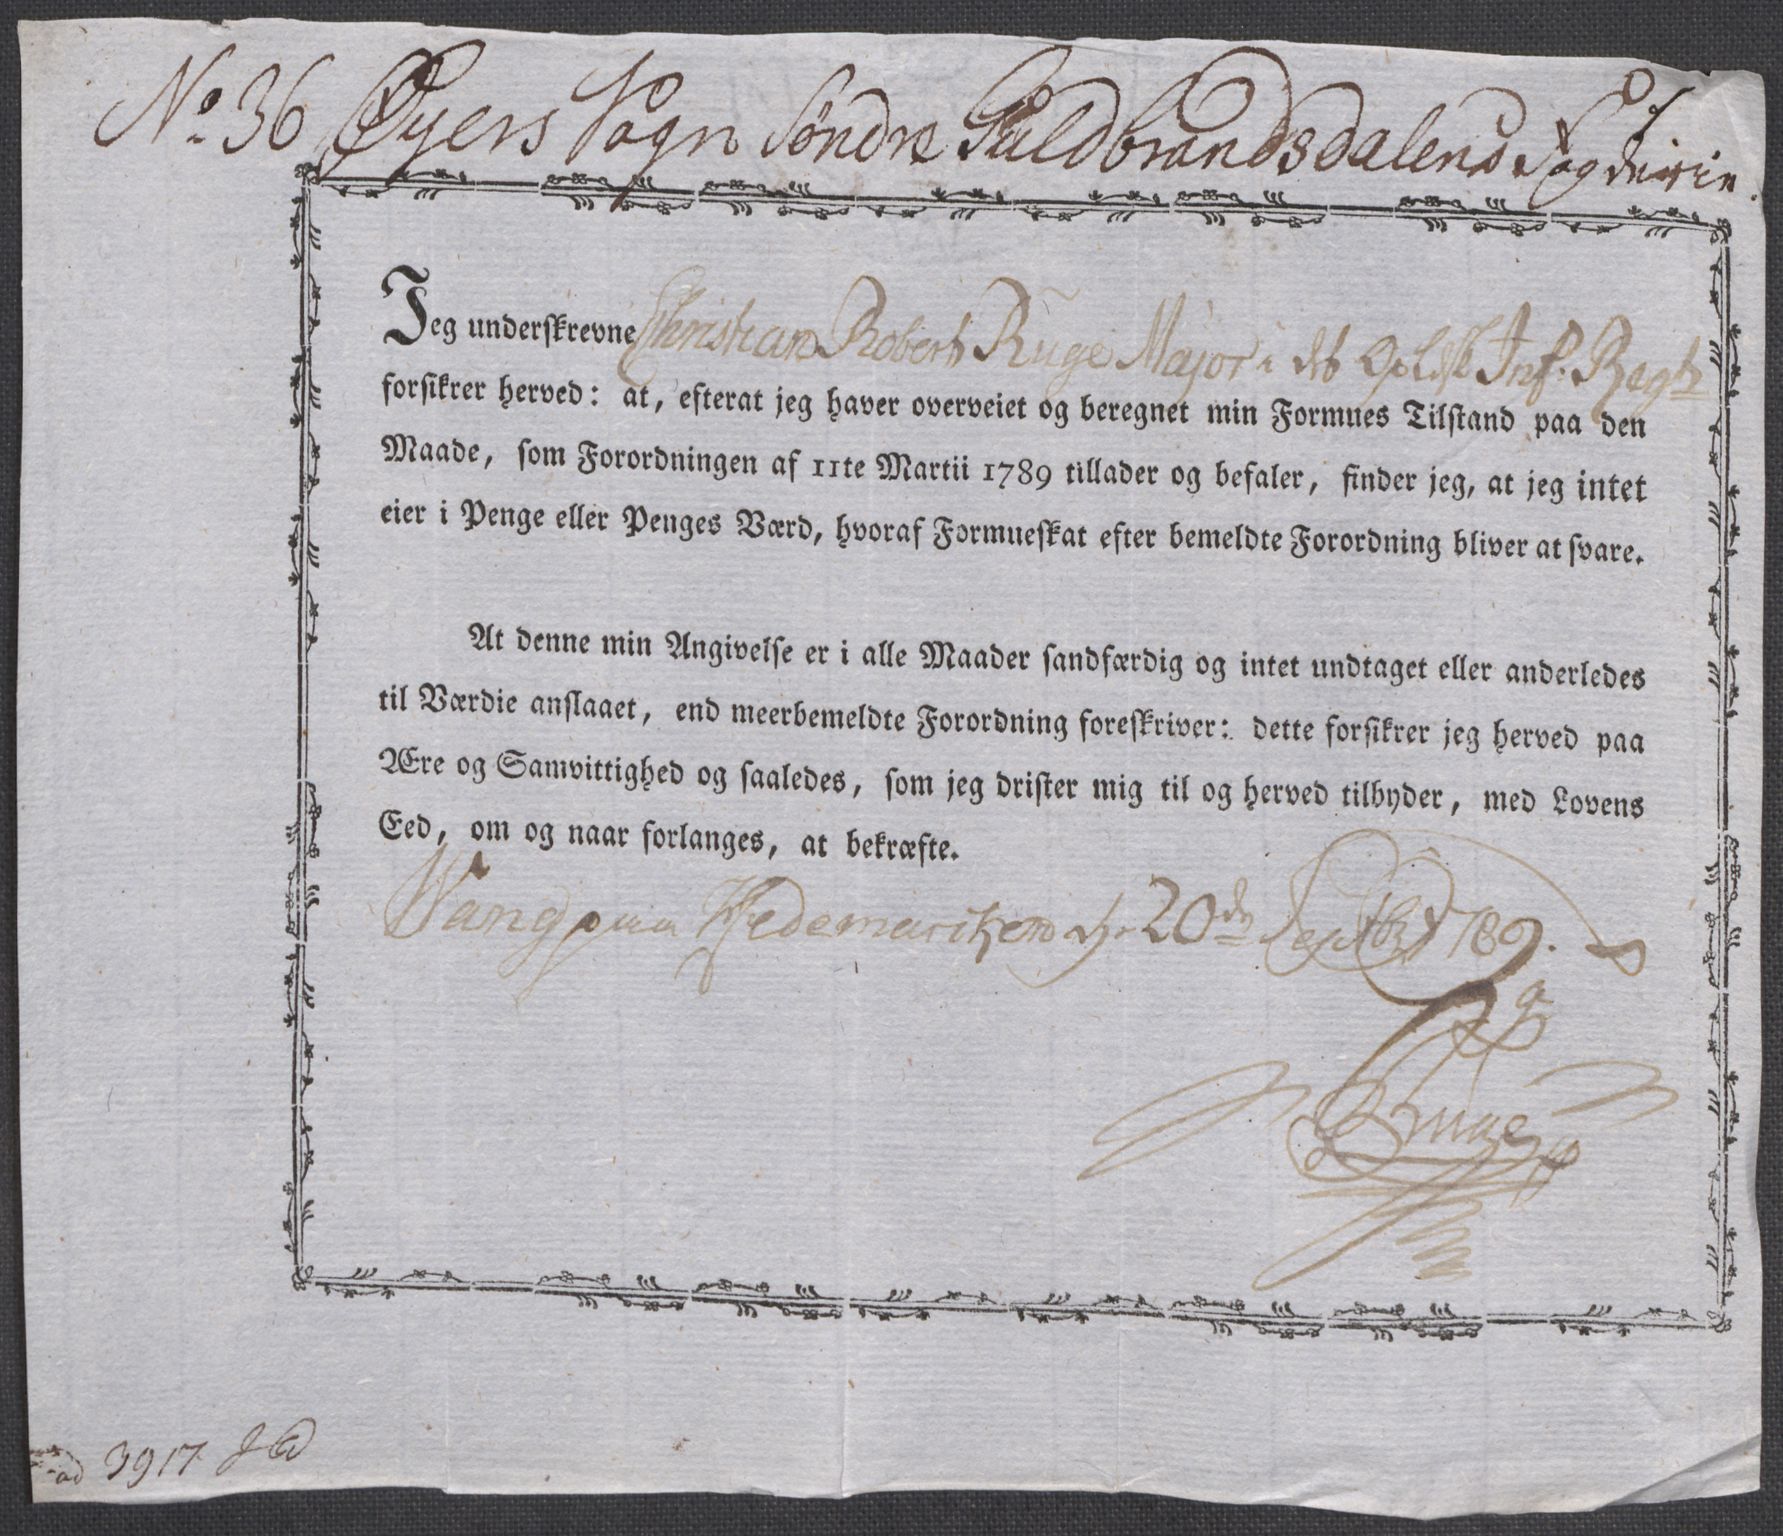 No. 36 Øyers Sogn Søndre Guldbrandsdalens Fogderie.
Jeg underskrevne Christian Robert Ruge Major i det Opl. Inf. Regt
forsikrer herved: at, efterat jeg haver overveiet og beregnet min Formues Tilstand paa den
Maade, som Forordningen af 11te Martii 1789 tillader og befaler, finder jeg, at jeg intet
eier i Penge eller Penges Værd, hvoraf Formueskat efter bemeldte Forordning bliver at svare.
At denne min Angivelse er i alle Maader sandfærdig og intet undtaget eller anderledes
til Værdie anslaaet, end meerbemeldte Forordning foreskriver: dette forsikrer jeg herved paa
Ære og Samvittighed og saaledes, som jeg drister mig til og herved tilbyder, med Lovens
Eed, om og naar forlanges, at bekræfte.
Wang paa Hedemarken d. 20de Septbr 1789.
Ruge
ad 3917